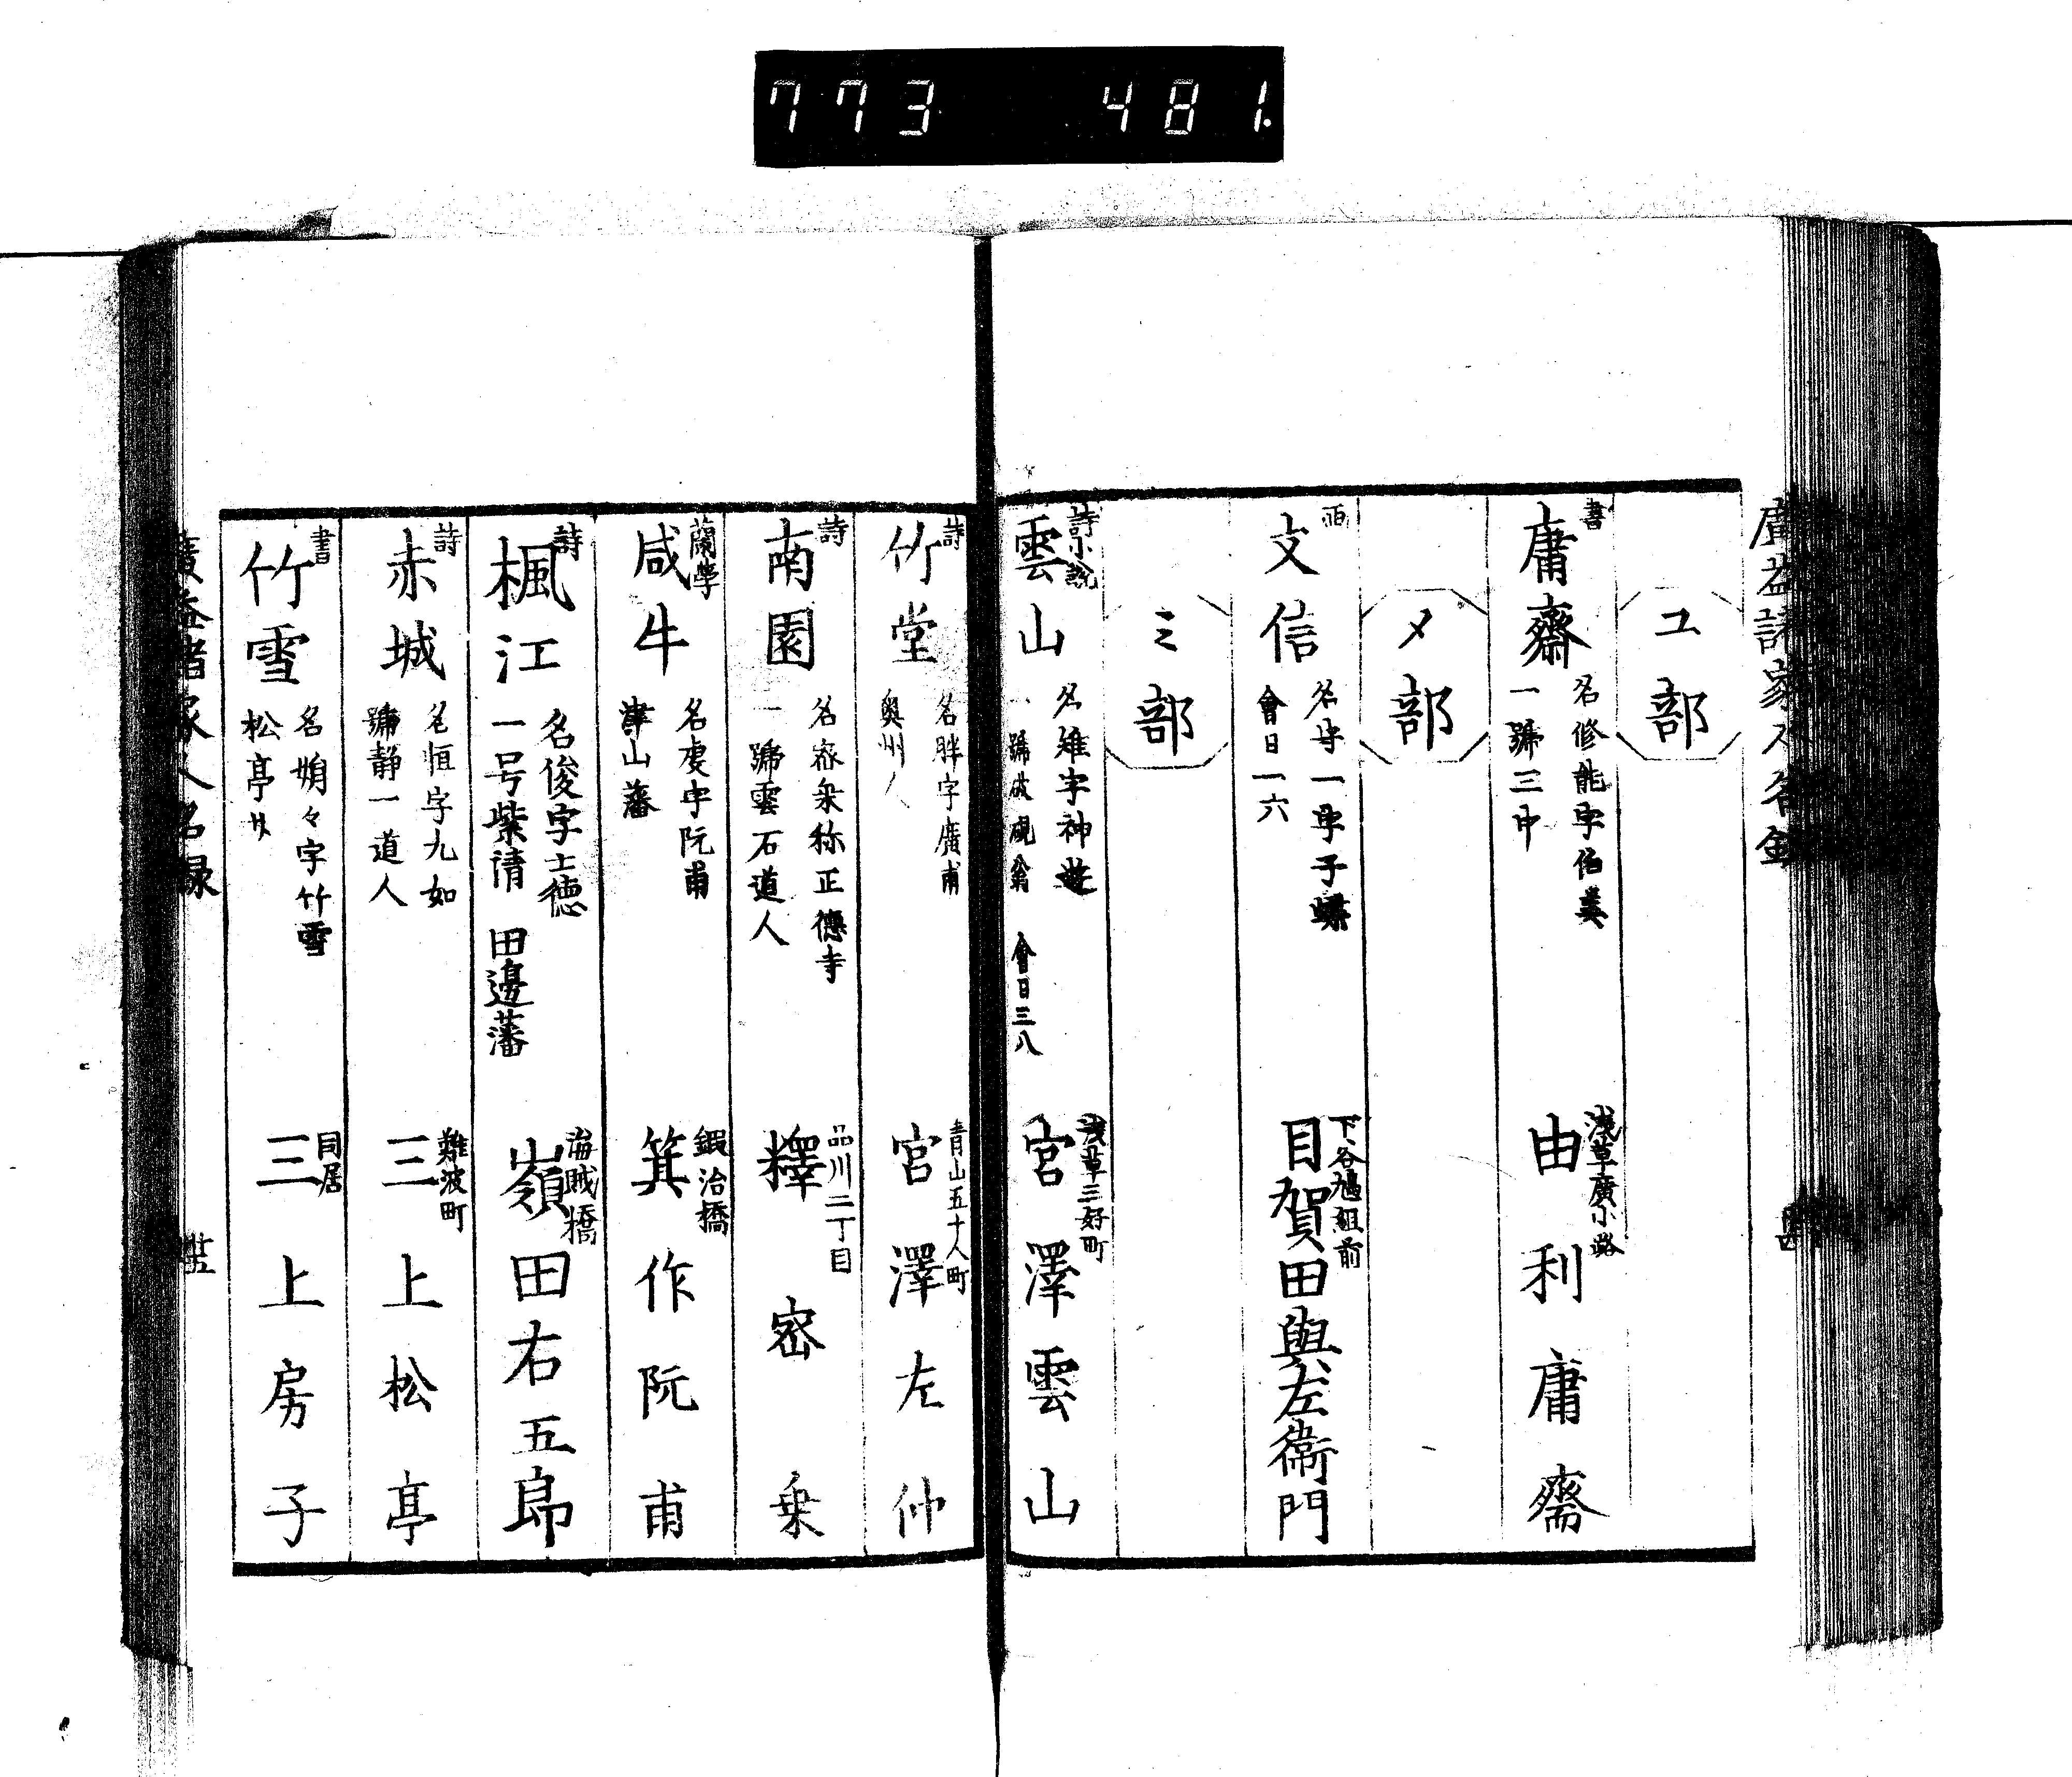 773 481.
廣益諸家人名録
ユ部
書
庸齋
名修能字伯美
一號三中
淺草廣小路
由利庸齋
メ部
画
文信
名守一字子蠂
會日一六
下谷鳩組前
目賀田與左衛門
ミ部
詩小説
雲山
名雉字神遊
一號破硯翁 會日三八
淺草三好町
宮澤雲山
詩
竹堂
名胖字廣甫
奥州人
青山五十人町
宮澤左仲
詩
南園
名宻乗称正德寺
一號雲石道人
品川二丁目
釋宻乗
蘭學
咸牛
名虔字阮甫
津山藩
鍜治橋
箕作阮甫
詩
楓江
名俊字士德
一号紫清 田邊藩
海賊橋
嶺田右五郎
詩
赤城
名恒字九如
號静一道人
難波町
三上松亭
書
竹雪
名娟々字竹雪
松亭女
同居
三上房子
廣益諸家人名録